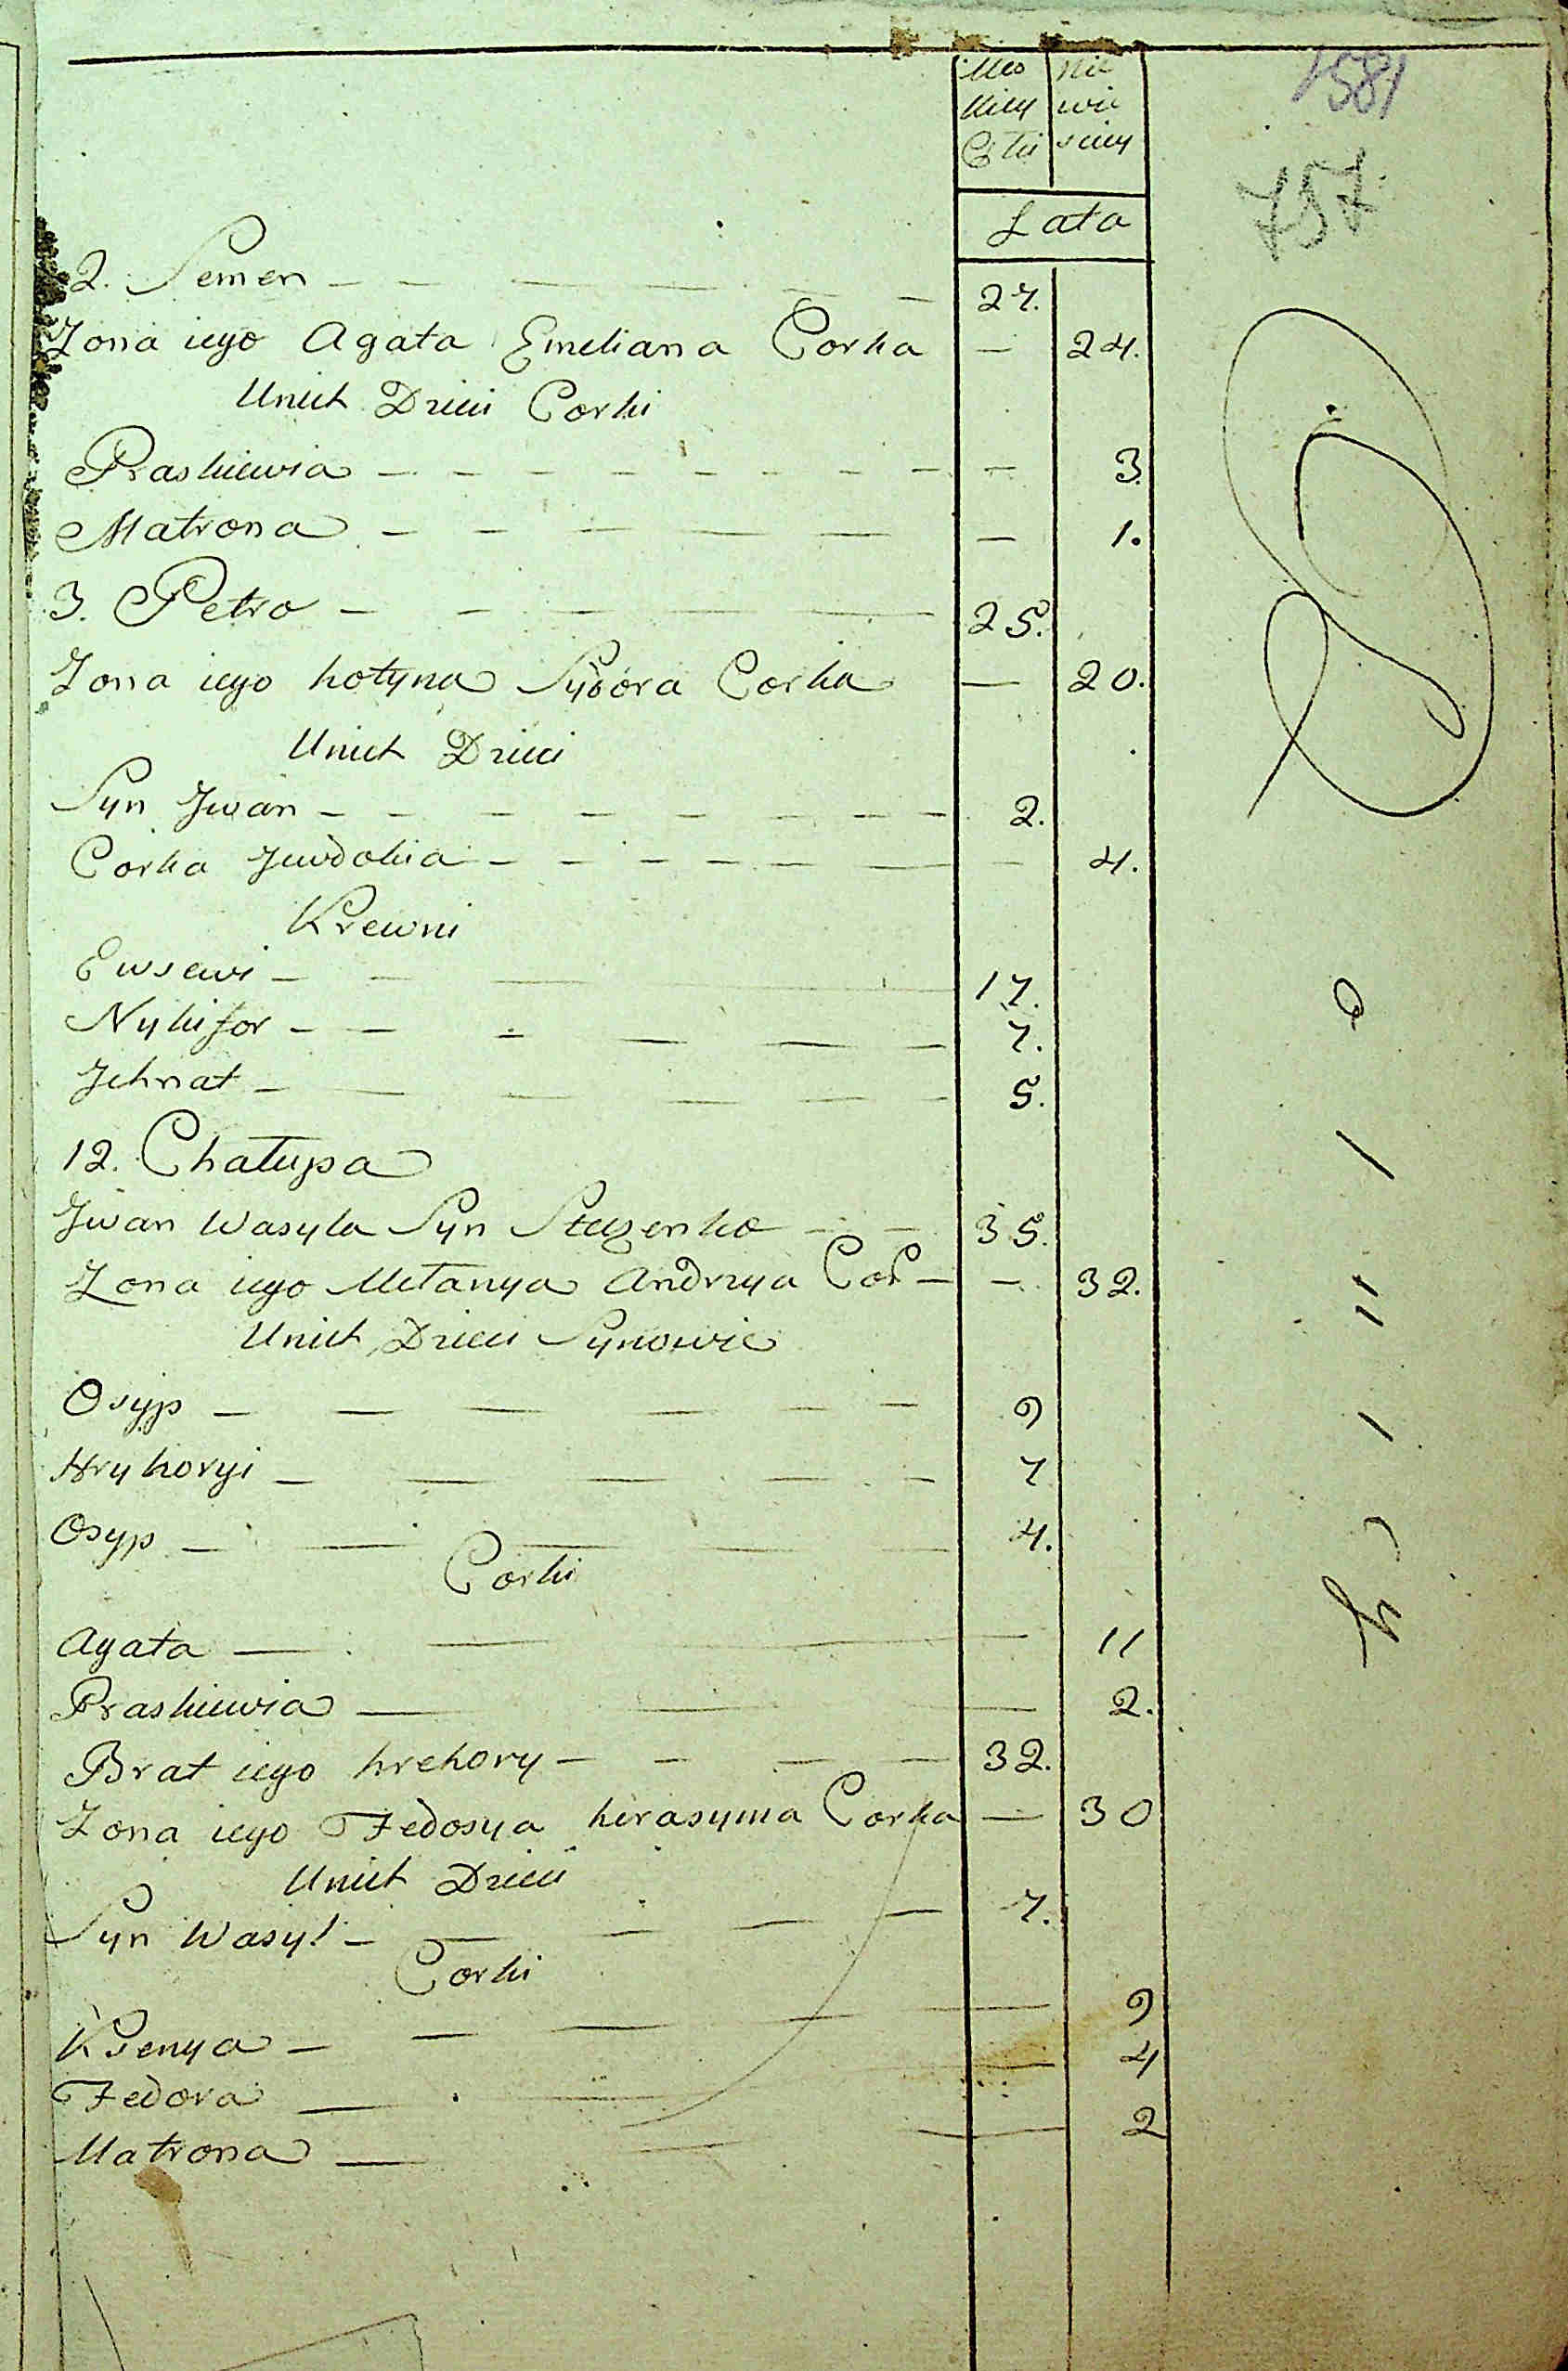 Mes Nie
kiey wie
Płci sciey
1581
757
Lata
2. Semen — — — — — 27.
Zona iego Agata Emeliana Corka — 24.
Unich Dzieci Corki
Praskiewia — — — — — 3.
Matrona — — — — — 1.
3. Petro — — — — — 25.
Zona iego hotyna Sydora Corka — 20.
Unich Dzieci
Syn Jwan — — — — — 2.
Corka Jewdokia — — — — — 4.
Krewni
Ewsewi — — — — 17.
Nykifor — — — — — 7.
Jehnat — — — — — 5.
12. Chałupa
Jwan Wasyla Syn — — 35.
Zona iego Mełanya Andrzya Cor — — 32.
Unich Dzieci Synowie
Osyp — — — — — 9
Hryhoryi — — — — — 7
Osyp — — — — — 4.
Corki
Agata — — — — 11
Praskiewia — — — — 2.
Brat iego hrehory — — — — 32.
Zona iego Fedosya herasyma Corka — 30
Unich Dzieci
Syn Wasyl — — — — — 7.
Corki
Ksenya — — — — 9
Fedora — — — — 4
Matrona — — — — 2